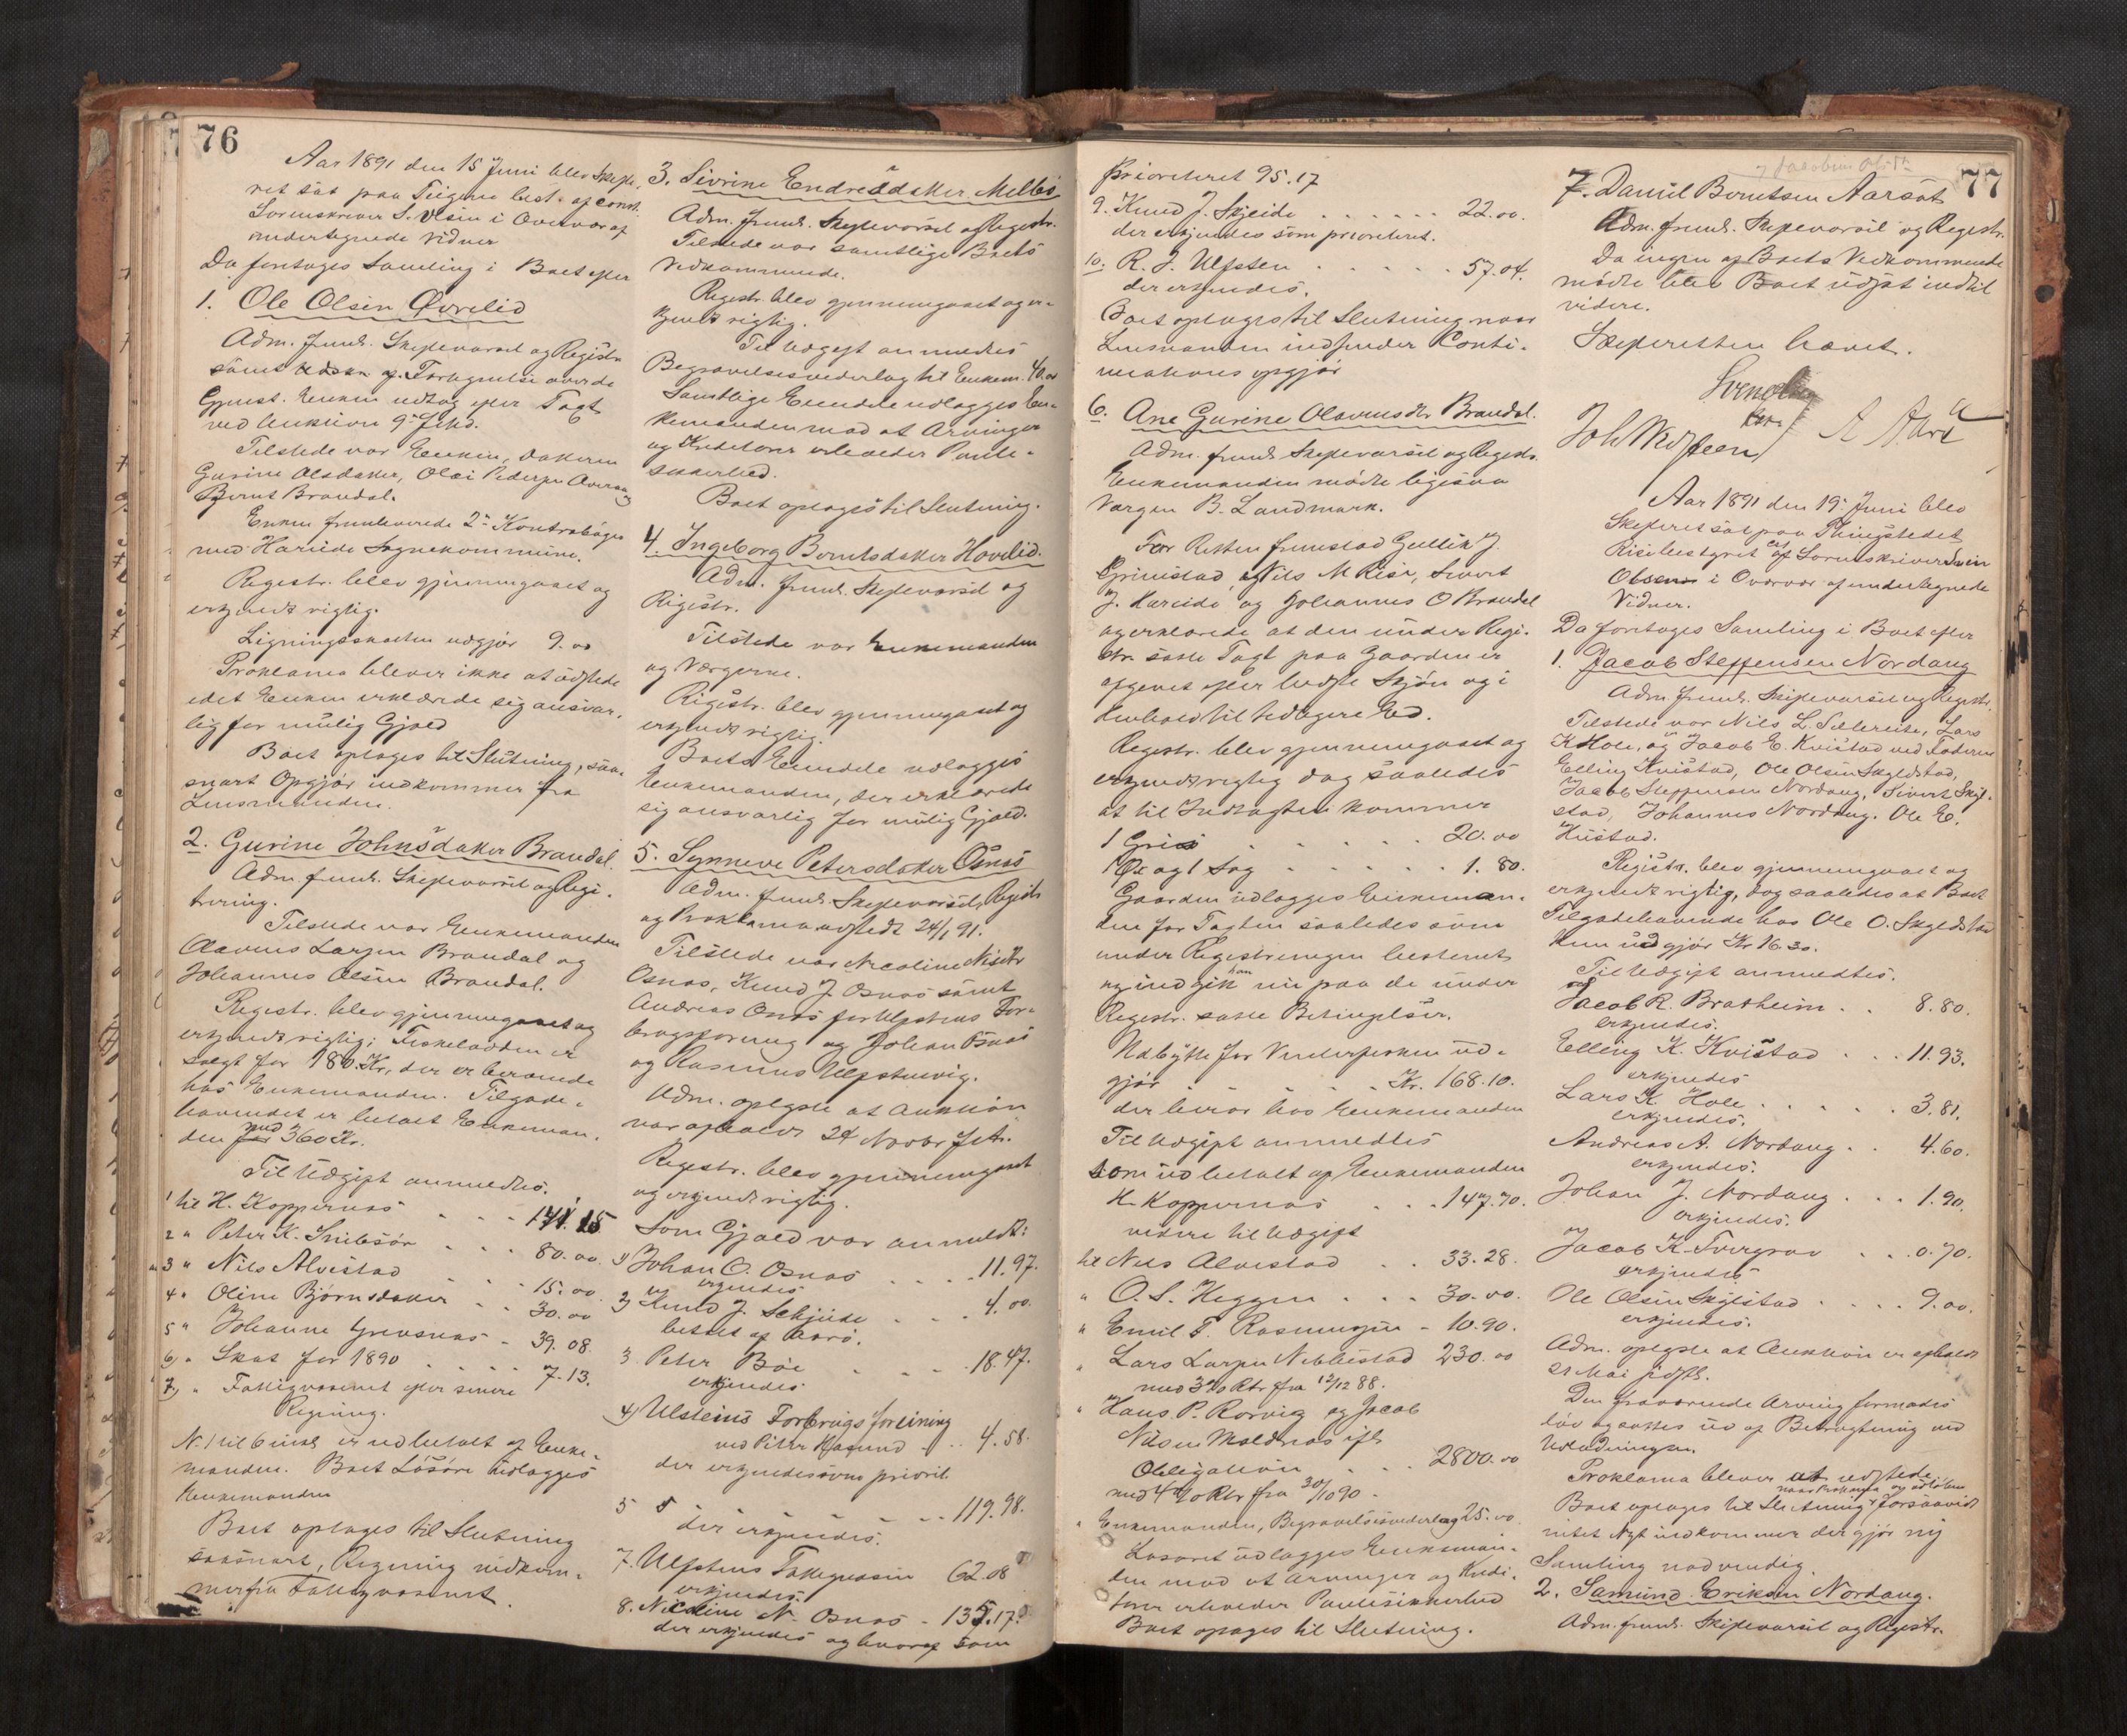 76
Aar 1891 den 15 Juni blev Skifte-
ret sat paa Teigene best. af const.
Sorenskriver S. Olsen i Overvær af
undertegnede Vidner
Da foretoges Samling i Boet efter
1. Ole Olsen Øvrelid
Adm. freml. Skiftevarsel og Registr.
samt Udskr. af Fortegnelse over de
Gjenst. Enken udtog efter Taxt
ved Auktion 9de
Tilstede var Enken, Datteren
Gurine Olsdatter, Olai Pedersen Aurvaag
Bernt Brandal.
Enken fremleverede 2de Kontrabøger
med Hareide Sognekommune.
Registr. blev gjennemgaaet og
erkjendt rigtig.
Ligningsskatten udgjør 9.00
Proklama bliver ikke at udstede
idet Enken erklærede sig ansvar-
lig for mulig Gjæld
Boet optoges til Slutning, saa-
snart Opgjør indkommer fra
Lensmanden.
2. Gurine Johnsdatter Brandal.
Adm. freml. Skiftevarsel og Regi-
strering.
Tilstede var Enkemanden
Olavus Larsen Brandal og
Johannes Olsen Brandal.
Registr. blev gjennemgaaet og
erkjendt rigtig; Fiskelodden er
solgt for 180 Kr, der er beroende
hos Enkemanden. Tilgode-
havendet er betalt Enkeman-
den med 360 Kr.
Til Udgift anmeldtes.
1 til H. Koppernæs . . . 141.15
2 " Peter K. Snibsør . . 80.00
3 " Nils Alvestad . . 15.00
4 " Oline Bjørnsdatter . . 30.00
5 " Johanne Grevsnæs - 39.08
6) " Skat for 1890 . . . . 7.13.
7) " Fattigvæsenet efter senere
Regning.
N. 1 til 6 incl. er udbetalt af Enke-
manden. Boets Løsøre udlægges
Enkemanden
Boet optoges til Slutning
saasnart, Regning indkom-
mer fra Fattigvæsenet.
3. Sivrine Endresdatter Melbø
Adm. freml. Skiftevarsel og Registr.
Tilstede var samtlige Boets
Vedkommende.
Registr. blev gjennemgaaet og er-
kjendt rigtig.
Til Udgift anmeldtes
Begravelsesvederlag til Enkem. 40.00
Samtlige Eiendele udlægges En-
kemanden mod at Arvinger
og Kreditorer erholder Pante-
sikkerhed.
Boet optoges til Slutning.
4. Ingeborg Berntsdatter Hovlid.
Adm. freml. Skiftevarsel og
Registr.
Tilstede var Enkemanden
og Værgerne.
Registr. blev gjennemgaaet og
erkjendt rigtig.
Boets Eiendele udlægges
Enkemanden, der erklærede
sig ansvarlig for mulig Gjæld.
5. Synneve Petersdatter Osnæs
Adm. freml. Skiftevarsel, Registr
og Proklama udstedt 24/1 91.
Tilstede var Nicoline
Osnæs, Knud J. Osnæs samt
Andreas Osnæs for Ulfstens For-
brugsforening og Johan Osnæs
og Rasmus Ulfstenvig.
Adm. oplyste at Auktion
var afholdt 24 Novbr f. A.
Registr. blev gjennemgaaet
og erkjendt rigtig.
Som Gjæld var anmeldt:
1) Johan O. Osnæs . . . . 11.97.
erkjendes
2) Knud J. Schjeide . . . 4.00.
betalt af
3 Peter Bøe . . . 18.47.
erkjendes
4) Ulsteins Forbrugsforening
ved Peter Hasund . . . 4.58.
der erkjendes som priorit.
5 . . . . 119.98.
der erkjendes.
7. Ulfstens Fattigvæsen 62.08
erkjendes.
8. Nicoline N. Osnæs - 135.17.
der erkjendes og hvoraf som
prioriteret 95.17
9. Knud J. Skjeide . . . . . . 22.00.
der erkjendes som prioriteret.
10. R. J. Ulfsten . . . . . 57.04.
der erkjendes.
Boet optoges til Slutning naar
Lensmanden indsender Konti-
nuations opgjør
6. Ane Gurine Olavusdtr Brandal.
Adm. freml. Skiftevarsel og Registr.
Enkemanden mødte ligesaa
Værgen B. Landmark.
For Retten fremstod Gullik J.
Grimstad, Nils M Riise, Sivert
J. Hareide og Johannes O Brandal
og erklærede at den under Regi-
str. satte Taxt paa Gaarden er
afgivet efter bedste Skjøn og i
Henhold til tidligere Ed.
Registr. blev gjennemgaaet og
erkjendt rigtig dog saaledes
at til Indtægten kommer
1 Gris . . . . . 20.00
1 Øx og 1 Sag . . . . 1.80.
Gaarden udlægges Enkeman-
den for Taxten saaledes som
under Registreringen bestemt
og indgik han nu paa de under
Registr. satte Betingelser.
Udbytte for Vinterfisken ud-
gjør . . . . . Kr. 168.10.
der beror hos Enkemanden
Til Udgift anmeldtes
som udbetalt af Enkemanden
H. Koppernæs . . 147.70.
videre til Udgift
til Nils Alvestad . . 33.28.
" O. S. Heggen . . . 30.00.
" Emil T. Rasmussen - 10.90.
" Lars Larsen Nebbestad 230.00
med 3% Rtr fra 12/12 88.
" Hans P. Rørvig og Jacob
Nilsen Moldnæs ifl.
Obligation . . . 2800.00
med 4% Rtr fra 30/10 90.
" Enkemanden, Begravelsesvederlag 25.00
Løsøret udlægges Enkeman-
den mod at Arvinger og Kredi-
torer erholder Pantesikkerhed
Boet optoges til Slutning.
77
7. Daniel Berntsen Aarsæt
Adm. freml. Skiftevarsel og Registr.
Da ingen af Boets Vedkommende
mødte blev Boet udsat indtil
videre.
Skifteretten hævet.
Svend Olsen
A Aarø
Aar 1891 den 19. Juni blev
Skifteret sat paa Thingstedet
Riise bestyret af Sorenskriver Svein
Olsen i Overvær af undertegnede
Vidner.
Da foretoges Samling i Boet efter
1. Jacob Steffensen Nordang
Adm. freml. Skiftevarsel og Registr.
Tilstede var Nils L. Sætereite, Lars
K Hole, og Jacob E. Kvistad ved Faderen
Elling Kvistad, Ole Olsen Skylstad,
Jacob Steffensen Nordang, Sivert Skyl-
stad, Johannes Nordang. Ole E.
Hustad.
Registr. blev gjennemgaaet og
erkjendt rigtig, dog saaledes at Boets
Tilgodehavende hos Ole O. Skylstad
kun udgjør Kr 16.30.
Til Udgift anmeldtes.
Jacob R. Bratheim . . 8.80.
erkjendes.
Elling K. Kvistad . . . 11.93.
erkjendes
Lars K. Hole . . . . . 3.81.
erkjendes.
Andreas A. Nordang . . 4.60.
erkjendes.
Johan J. Nordang . . . 1.90.
erkjendes.
Jacob K. Tvergrov . . . 0.70.
erkjendes
Ole Olsen Skylstad . . . . 9.00.
erkjendes.
Adm. oplyste at Auktion er afholdt
21 Mai sidstl.
Den fraværende Arving formodes
død og sættes ud af Betragtning ved
Udlodningen.
Proklama bliver at udstede
naar Proklama er udløben
Boet optoges til Slutning forsaavidt
intet Nyt indkommer der gjør ny
Samling nødvendig.
2. Samund Eriksen Nordang.
Adm. freml. Skiftevarsel og Registr.